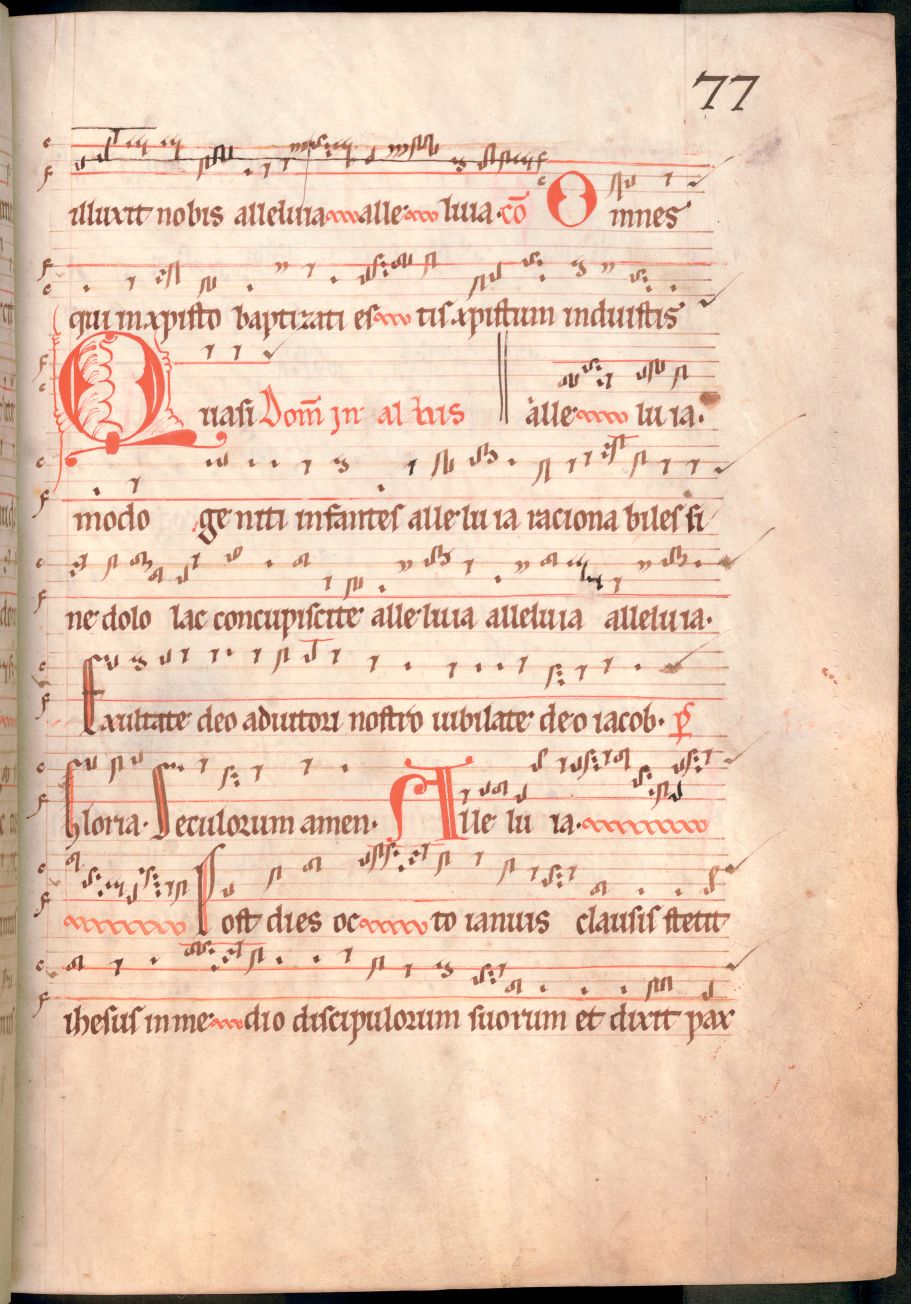 77
illuxit nobis alleluia alle luia. cō Omnes
qui in xpisto baptizati es tis xpistum induistis
Quasi Dom̄ in al bis alle lu ia.
modo geniti infantes alleluia raciona biles si
ne dolo lac concupiscite alleluia alleluia alleluia.
Exultate deo adiutori nostro iubilate deo iacob. p̄
Gloria. Seculorum amen. Alle lu ia.
Post dies oc to ianuis clausis stetit
ihesus in me dio discipulorum suorum et dixit pax